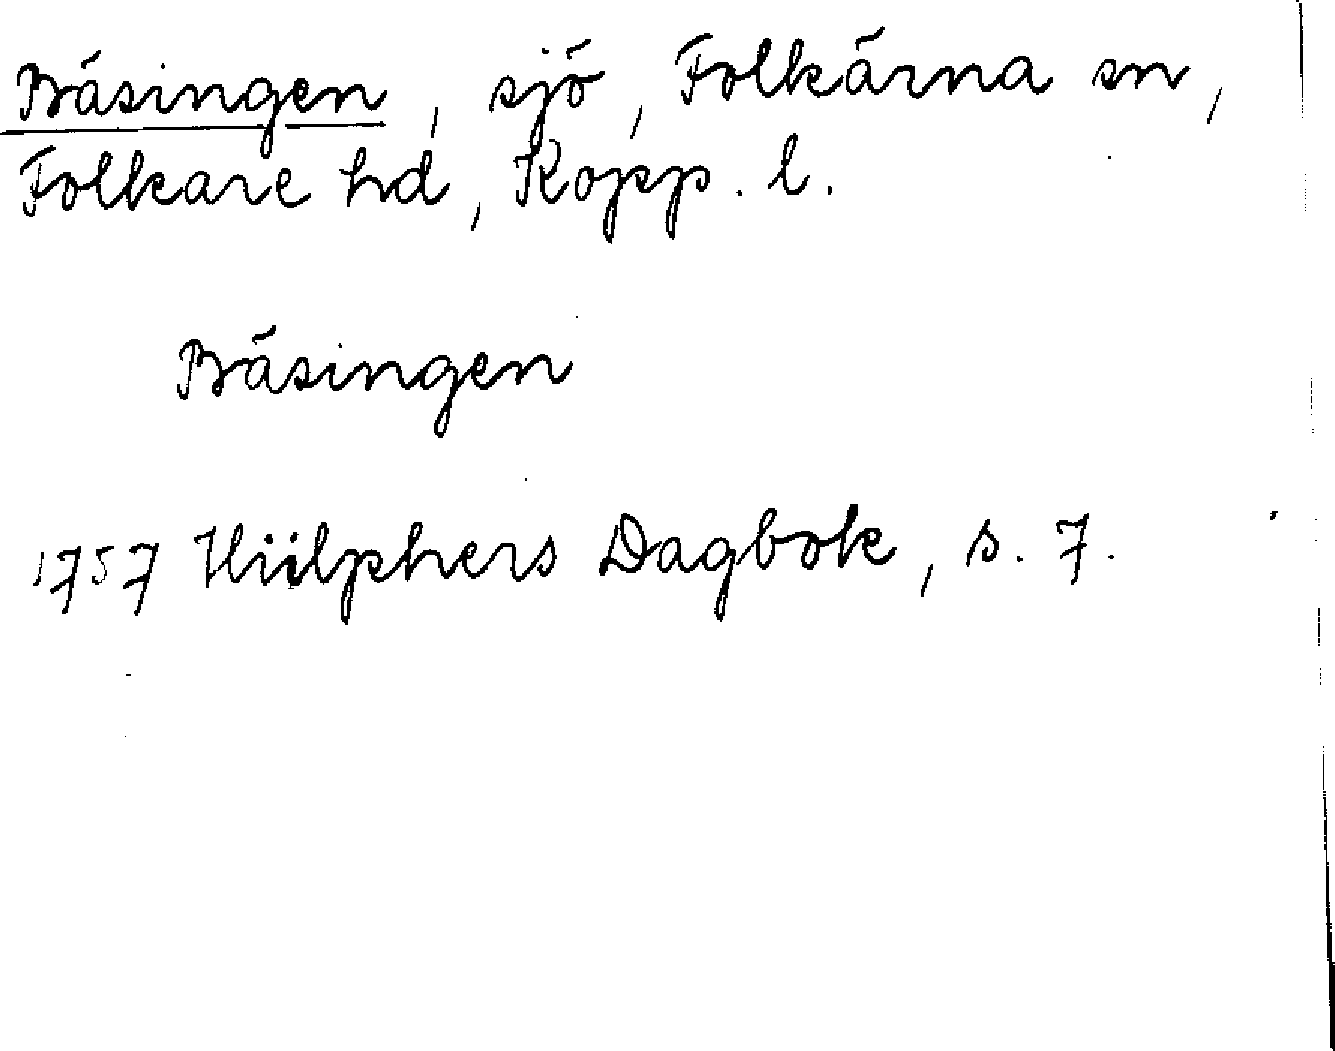 Bäsingen, sjö, Folkärna sn,
Folkare hd, Kopp. l.
Bäsingen
1757 Hülphers Dagbok, s. 7.